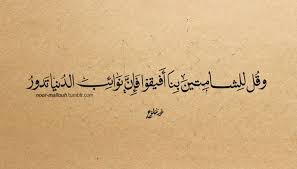 وقُل للشامتينَ بِنا أفيقوا فإنَّ نَوائِبَ الدُنيا تَدورُ
noor-mallouh.tumblr.com